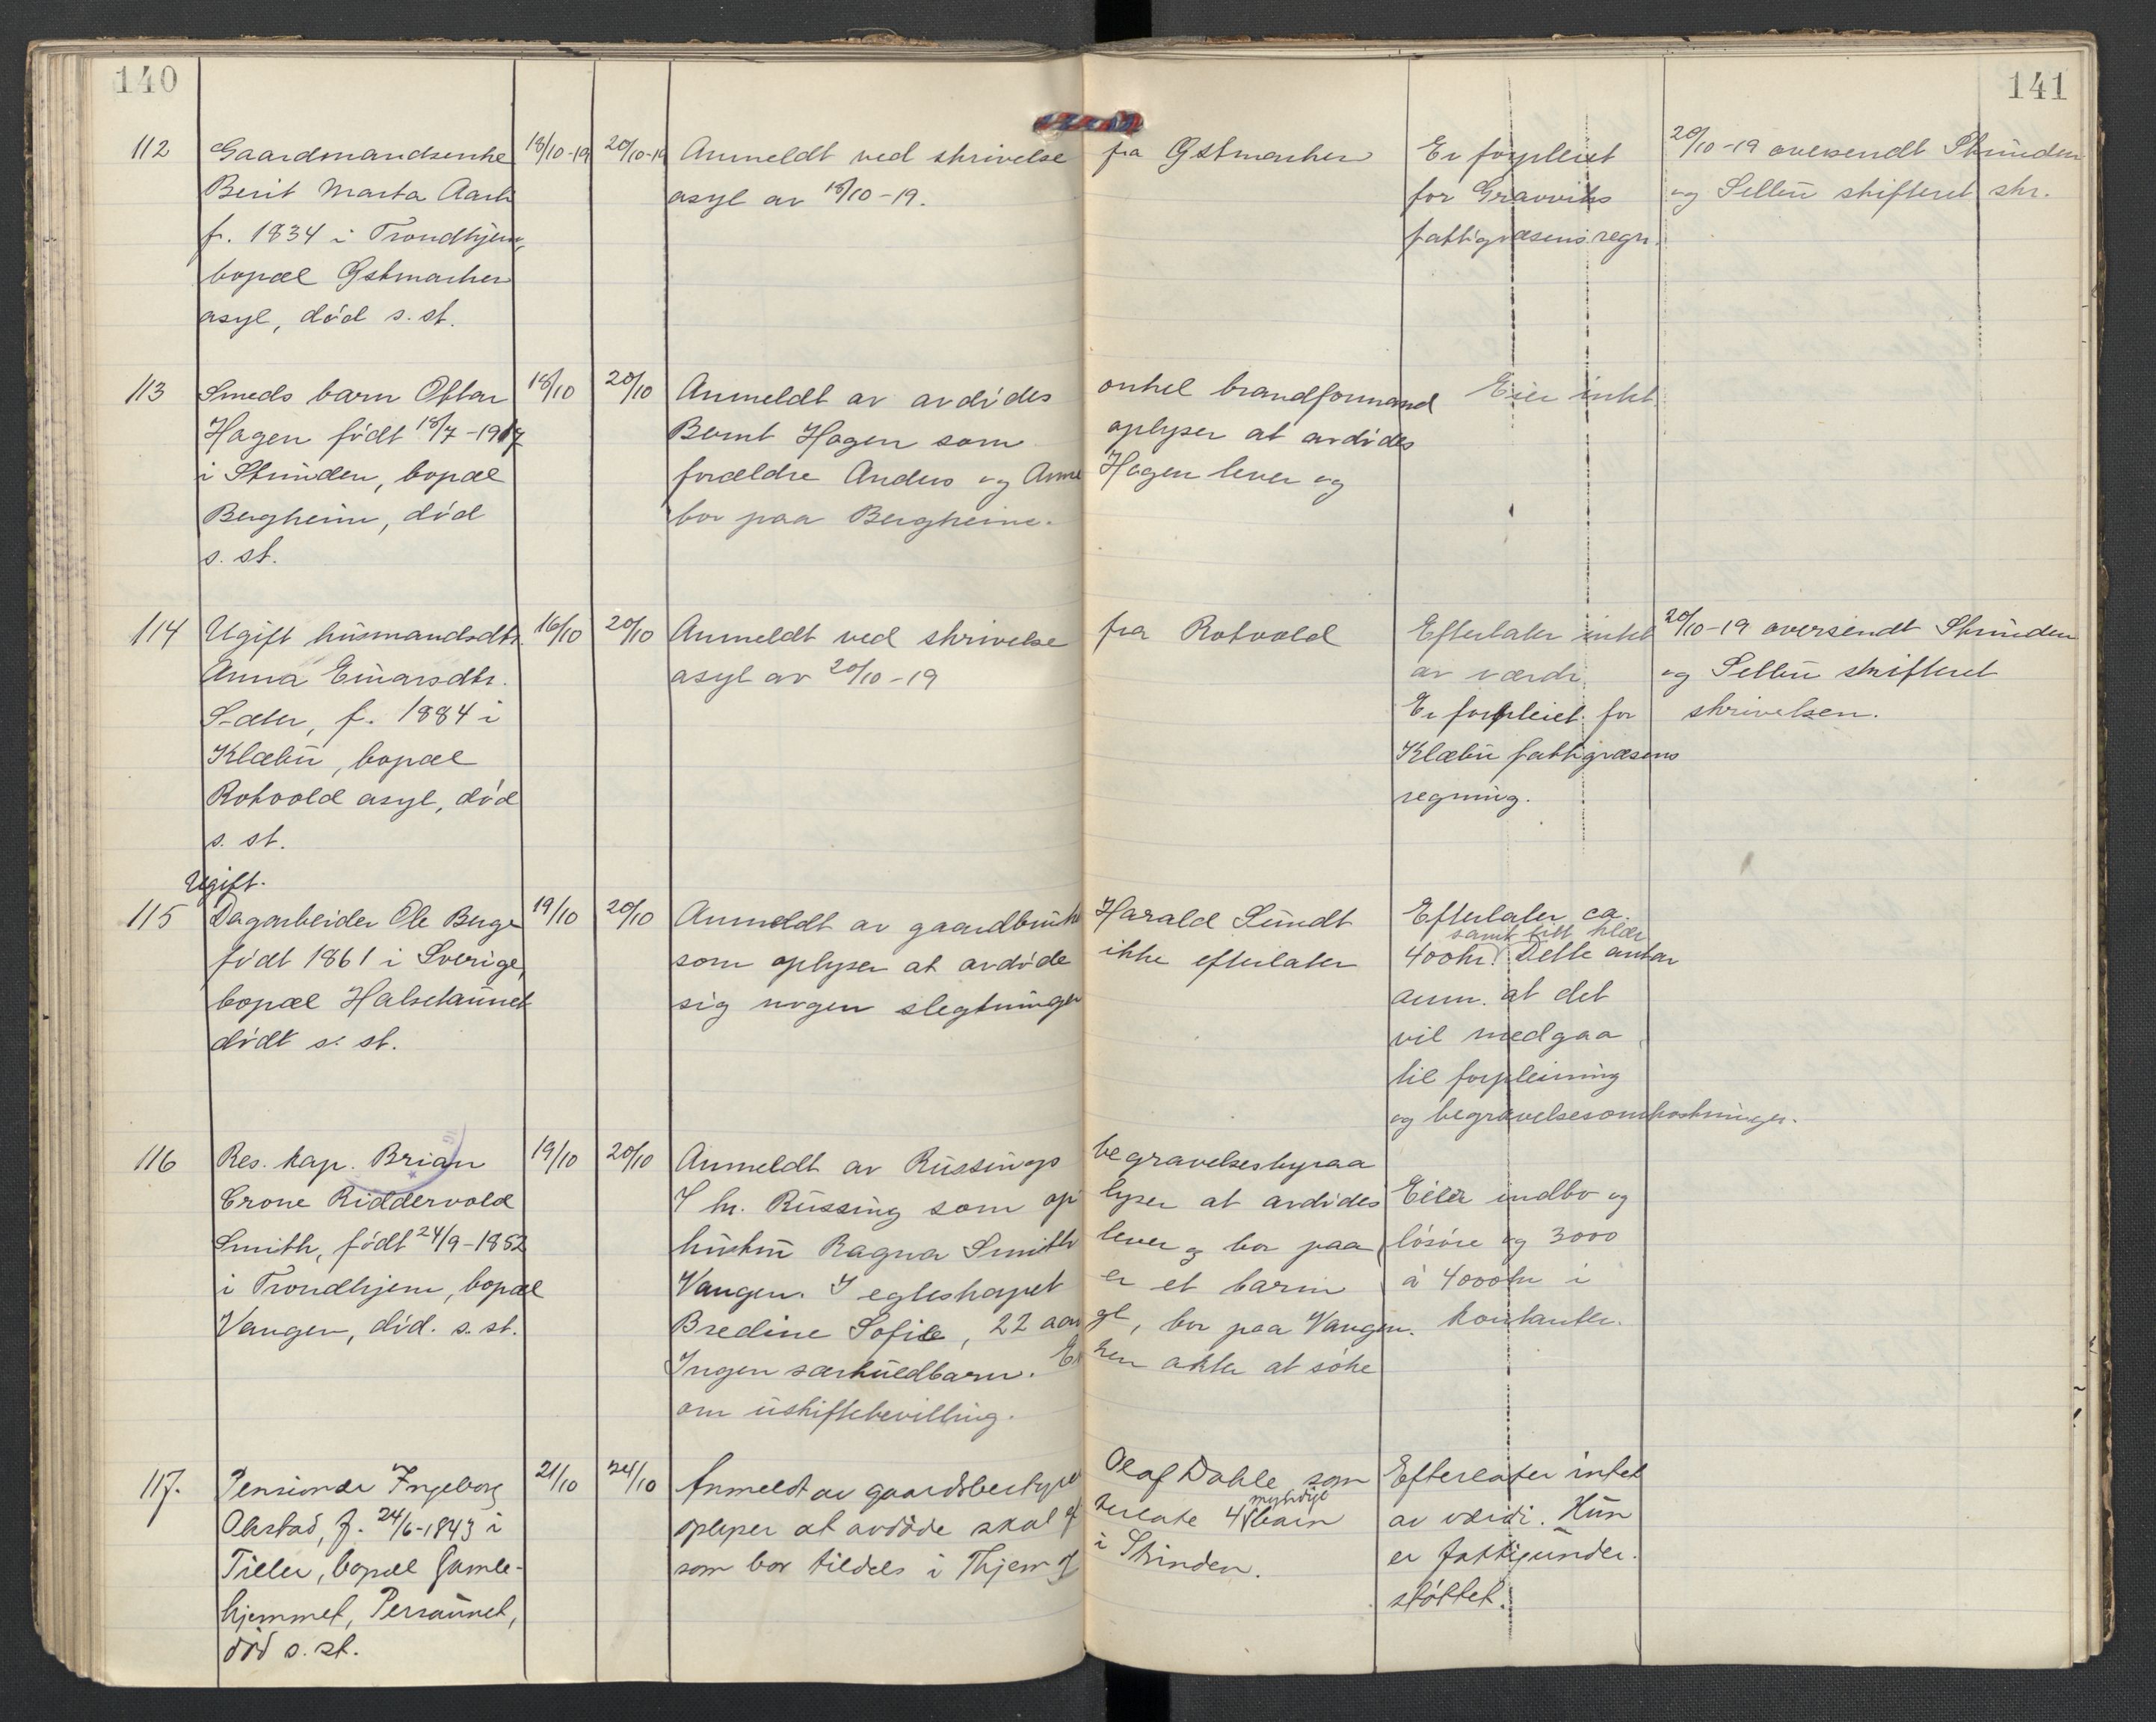 140
141
112 Gaardmandsenke 18/10-19 20/10-19 Anmeldt ved skrivelse fra Østmarken Er forpleiet 20/10-19 oversendt Strinden
Berit Marta Aarh asyl av 18/10-19. for Gravviks og Selbu skifteret skr.
f. 1834 i Trondhjem, fattigvæsens regn.
bopæl Østmarken
asyl, død s. st.
113 Smeds barn Ottar 18/10 20/10 Anmeldt av avdødes onkel brandformand Eier intet.
Hagen født 18/7-1917 Bernt Hagen som oplyser at avdødes
i Strinden, bopæl forældre Anders og Anne Hagen lever og
Bergheim, død bor paa Bergheim.
s. st.
114 Ugift husmandsdtr. 16/10 20/10 Anmeldt ved skrivelse fra Rotvold Efterlater intet 20/10-19 oversendt Strinden
Anna Einarsdtr. asyl av 20/10-19 av værdi. og Selbu skifteret
Sæter, f. 1884 i Er forpleiet for skrivelsen.
Klæbu, bopæl Klæbu fattigvæsens
Rotvold asyl, død regning.
s. st.
Ugift.
115 Dagarbeider Ole Berge 19/10 20/10 Anmeldt av gaardbruk Harald Lundt Efterlater ca.
samt litt klær
født 1861 i Sverige, som oplyser at avdøde ikke efterlater 400 kr. Dette antar
bopæl Halsetaunet sig nogen slegtninger anm. at det
dødt s. st. vil medgaa
til forpleining
og begravelsesomkostninger.
116 Res. kap. Brian 19/10 20/10 Anmeldt av Russings begravelsesbyraa
Crone Riddervold I hr. Russing som op lyser at avdødes Eier indbo og
Smith, født 24/9-1852 hustru Ragna Smith lever og bor paa løsøre og 3000
i Trondhjem, bopæl Vangen. I egteskapet er et barn à 4000 kr i
Vangen, død. s. st. Bredine Sofie, 22 aar gl, bor paa Vangen. kontanter.
Ingen særkuldbarn. En ken akter at søke
om uskiftebevilling.
117. Pensionær Ingeborg 21/10 24/10 Anmeldt av gaardsbestyrer Olaf Dahle som Efterlater intet
myndige
Okstad, f. 24/6-1843 i oplyser at avdøde skal ef terlate 4 barn av værdi. Hun
Tiller, bopæl Gamle- som bor tildels i Thjem og i Strinden. er fattigunder-
hjemmet, Persaunet, støttet.
død s. st.